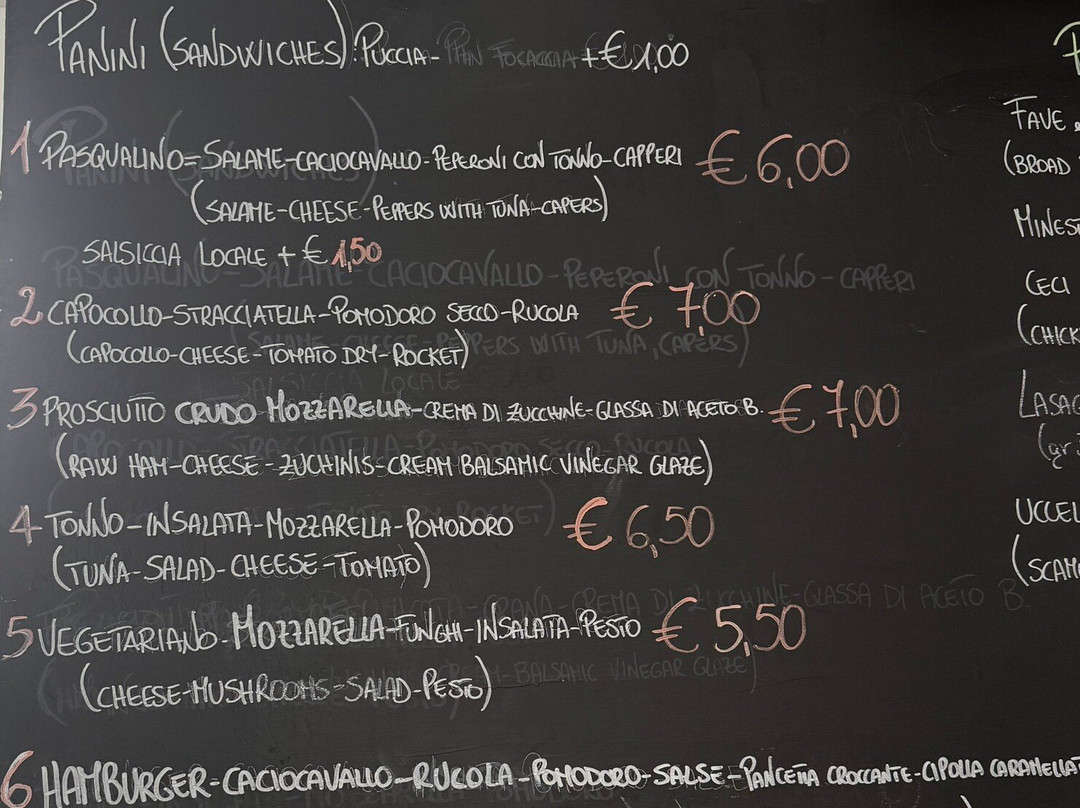 PANINI (SANDWICHES): PUCCIA - PAN FOCACCIA + € 1,00
1 PASQUALINO = SALAME - CACIOCAVALLO - PEPERONI CON TONNO - CAPPERI € 6,00
(SALAME - CHEESE - PEPPERS WITH TUNA - CAPERS)
SALSICCIA LOCALE + € 1,50
2 CAPOCOLLO - STRACCIATELLA - POMODORO SECCO - RUCOLA € 7,00
(CAPOCOLLO - CHEESE - TOMATO DRY - ROCKET)
3 PROSCIUTTO CRUDO MOZZARELLA - CREMA DI ZUCCHINE - GLASSA DI ACETO B. € 7,00
(RAW HAM - CHEESE - ZUCHINIS - CREAM BALSAMIC VINEGAR GLAZE)
4 TONNO - INSALATA - MOZZARELLA - POMODORO € 6,50
(TUNA - SALAD - CHEESE - TOMATO)
5 VEGETARIANO - MOZZARELLA - FUNGHI - INSALATA - PESTO € 5,50
(CHEESE - MUSHROOMS - SALAD - PESTO)
6 HAMBURGER - CACIOCAVALLO - RUCOLA - POMODORO - SALSE - PANCETTA CROCCANTE - CIPOLLA CARAMELLAT
FAVE
(BROAD
MINEST
CECI
(CHICK
LASAG
UCCEL
(SCAM